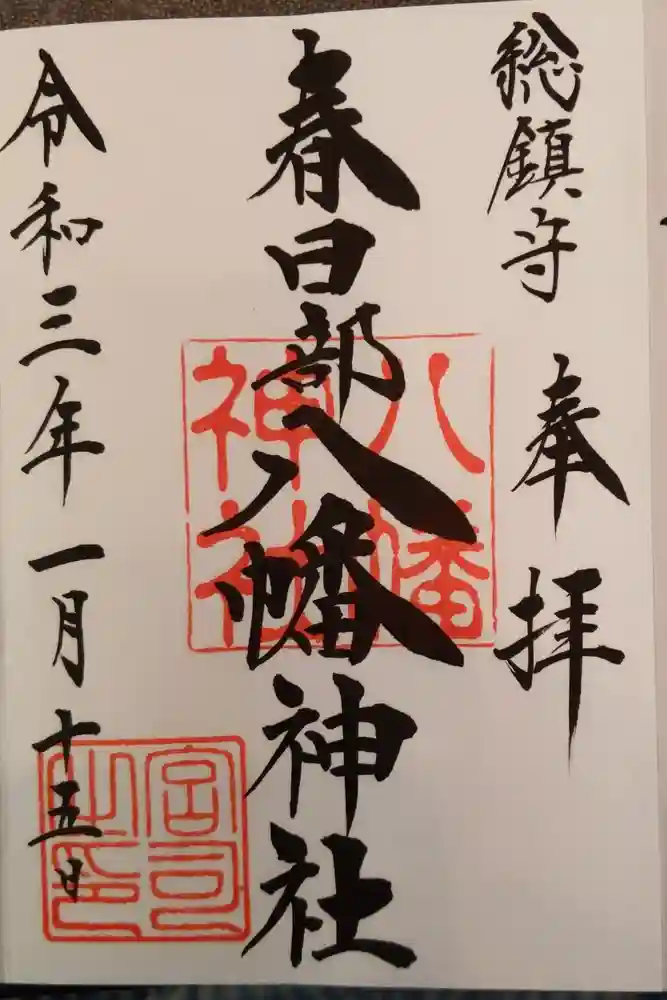 総鎮守
奉拝
春日部八幡神社
八幡
神社
令和三年一月十五日
宮司
之印